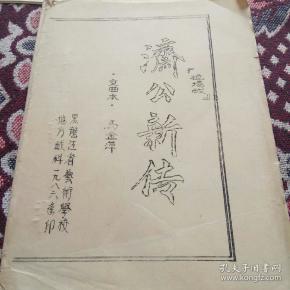 济公新传
·京西本·
马金萍
黑龙江省艺术学校
地方戏科一九八六年印
孔夫子旧书网